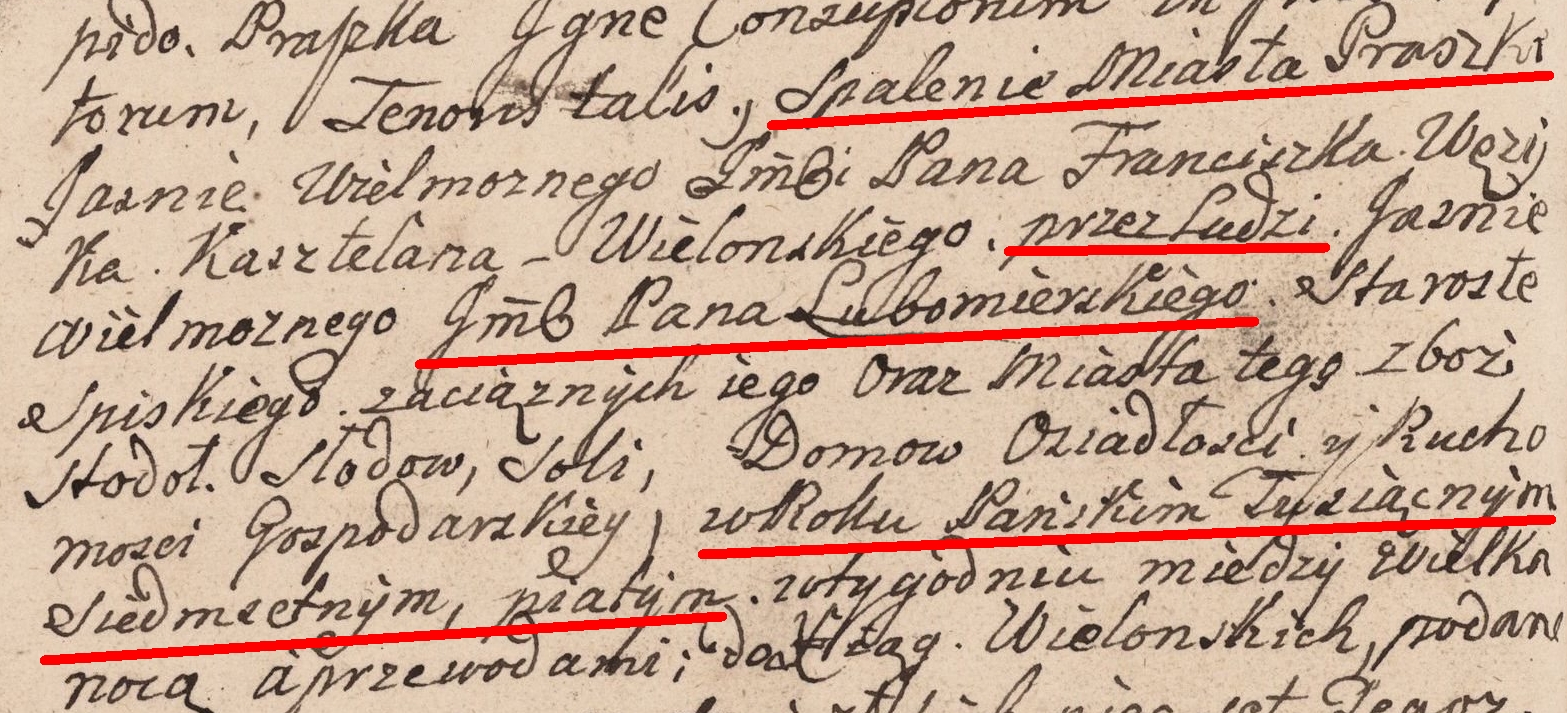 pido. Praszka Igne Consumptionem in
torum, Tenoris talis., Spalenie Miasta Praszki
Jasnie Wielmoznego Jm̃ci Pana Franciszka Węzij
ka Kasztelana Wielonskiego. przez Ludzi. Jasnie
wielmoznego Jm̃c Pana Lubomierskiego. Staroste
Spiskiego. zaciąznÿch iego Oraz Miasta tego zboż
stodoł. Słodow, Soli, Domow Osiadłosci ij Rucho
mosci Gospodarskiey, w Roku Panskim Tysiącnÿm
Siedmsetnÿm, piatÿm. w tygodniu między Wielka
nocą à przewodami; do Xiąg. Wielonskich, podan